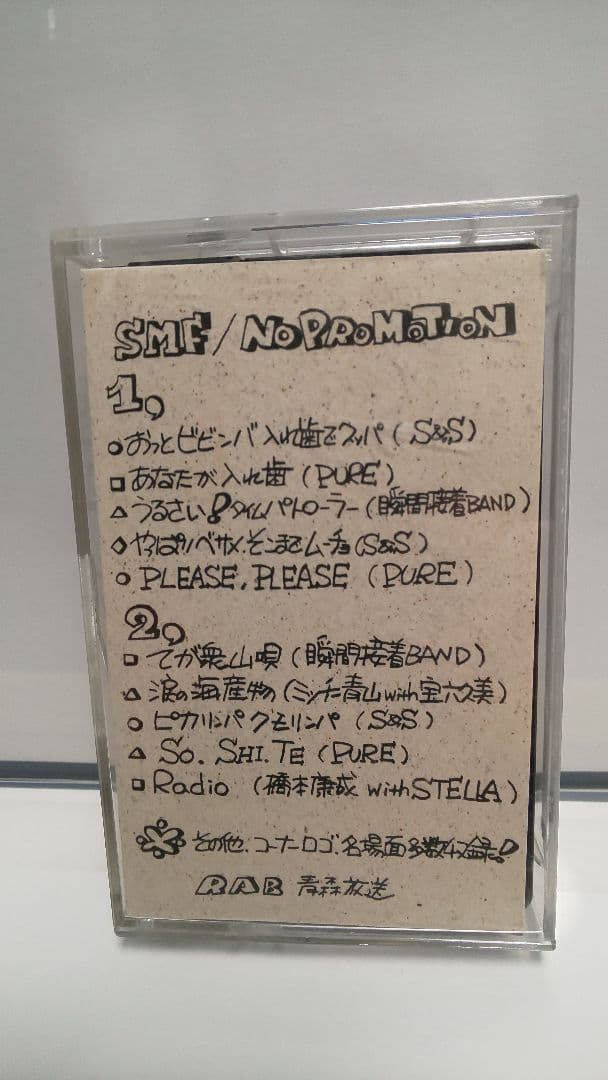 SMF/NOPROMOTION
1,
○おっとビビンバ入れ歯でスッパ(S&S)
□あなたが入れ歯(PURE)
△うるさい!タイムパトローラー(瞬間接着BAND)
◇やっぱり/ベサメ.そこまでムーチョ(S&S)
○PLEASE.PLEASE(PURE)
2,
□てが栗山唄(瞬間接着BAND)
△涙の海産物(ミッチー青山with宝六久美)
○ピカリンパクモリンパ(S&S)
△SO.SHI.TE(PURE)
□Radio (橋本康成 withSTELLA)
その他.コーナーロゴ.名場面多数収録!
RAB 青森放送